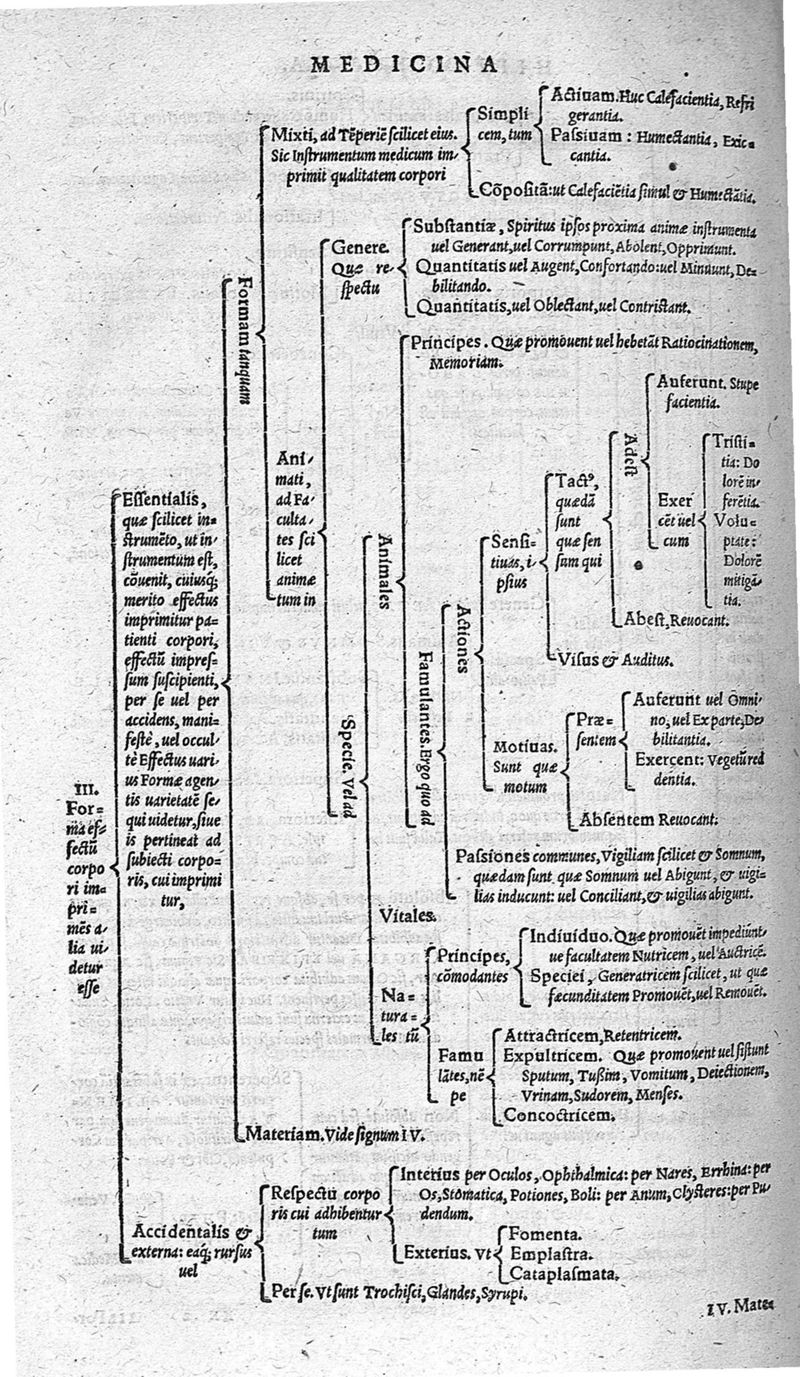 MEDICINA
III.
For-
ma effectū
corpo
ri im-
pri-
mēs a-
lia ui-
detur
esse
Essentialis,
quæ scilicet in-
strumēto, ut in-
strumentum est,
cōuenit, cuiusq;
merito effectus
imprimitur pa-
tienti corpori,
effectū impres-
sum suscipienti,
per se uel per
accidens, mani-
festè, uel occul-
tè Effectus uari-
us Formæ agen-
tis uarietatē se-
qui uidetur, siue
is pertineat ad
subiecti corpo-
ris, cui imprimi
tur,
Formam tanquam
Mixti, ad Tēperiē scilicet eius.
Sic Instrumentum medicum im-
primit qualitatem corpori
Simpli
cem, tum
Actiuam. Huc Calefacientia, Refri
gerantia.
Passiuam: Humectantia, Exic-
cantia.
Cōpositā: ut Calefaciētia simul & Humectātia.
Ani-
mati,
ad Fa-
culta-
tes sci
licet
animæ
tum in
Genere.
Quæ re-
spectu
Substantiæ, Spiritus ipsos proxima animæ instrumenta
uel Generant, uel Corrumpunt, Abolent, Opprimunt.
Quantitatis uel Augent, Confortando: uel Minuunt, De-
bilitando.
Quantitatis, uel Oblectant, uel Contristant.
Specie. Vel ad
Animales
Principes. Quæ promouent uel hebetāt Ratiocinationem,
Memoriam.
Famulantes. Ergo quo ad
Actiones
Sensi-
tiuas, i-
psius
Tactꝰ,
quædā
sunt
quæ sen
sum qui
Adest
Auferunt. Stupe
facientia.
Exer
cēt uel
cum
Tristi-
tia: Do
lorē in-
ferētia.
Volu-
ptate:
Dolorē
mitigā-
tia.
Abest, Reuocant.
Visus & Auditus.
Motiuas.
Sunt quæ
motum
Præ-
sentem
Auferunt uel Omni-
no, uel Ex parte, De-
bilitantia.
Exercent: Vegetū red
dentia.
Absentem Reuocant.
Passiones communes, Vigiliam scilicet & Somnum,
quædam sunt quæ Somnum uel Abigunt, & uigi-
lias inducunt: uel Conciliant, & uigilias abigunt.
Vitales.
Na-
tura-
les tū
Principes,
cōmodantes
Indiuiduo. Quæ promouēt impediūnt-
ue facultatem Nutricem, uel Auctricē.
Speciei, Generatricem scilicet, ut quæ
fæcunditatem Promouēt, uel Remouēt.
Famu
lātes, nē
pe
Attractricem, Retentricem.
Expultricem. Quæ promouent uel sistunt
Sputum, Tussim, Vomitum, Deiectionem,
Vrinam, Sudorem, Menses.
Concoctricem.
Materiam. Vide signum IV.
Accidentalis &
externa: eaq; rursus
uel
Respectu corpo
ris cui adhibentur
tum
Interius per Oculos, Ophthalmica: per Nares, Errhina: per
Os, Stomatica, Potiones, Boli: per Anum, Clysteres: per Pu-
dendum.
Exterius. Vt
Fomenta.
Emplastra.
Cataplasmata.
Per se. Vt sunt Trochisci, Glandes, Syrupi.
IV. Mate-